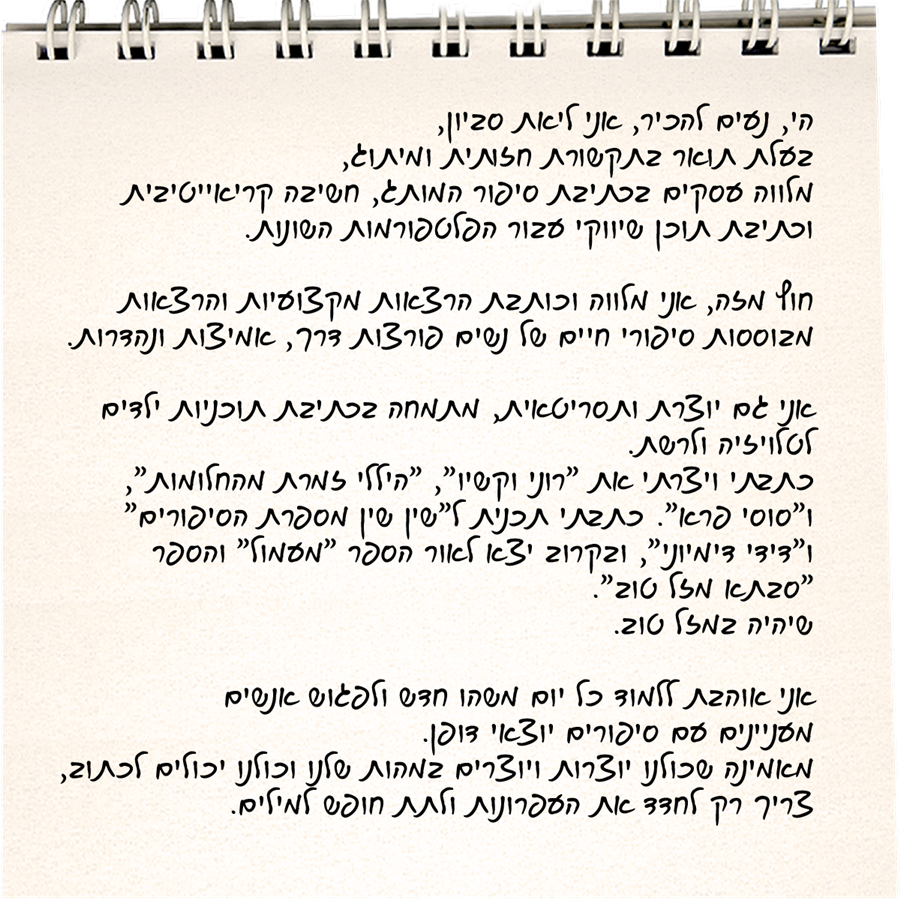 היי, נעים להכיר, אני ליאת סביון,
בעלת תואר בתקשורת חזותית ומיתוג,
מלווה עסקים בכתיבת סיפור המותג, חשיבה קריאייטיבית
וכתיבת תוכן שיווקי עבור הפלטפורמות השונות.
חוץ מזה, אני מלווה וכותבת הרצאות מקצועיות והרצאות
מבוססות סיפורי חיים של נשים פורצות דרך, אמיצות ונהדרות.
אני גם יוצרת ותסריטאית, מתמחה בכתיבת תוכניות ילדים
לטלויזיה ולרשת.
כתבתי ויצרתי את "רוני וקשיו", "היללי זמרת מהחלומות",
ו"סוסי פרא". כתבתי תכנית ל"שין שין מספרת הסיפורים"
ו"דידי דימיוני", ובקרוב יצא לאור הספר "מעמול" והספר
"סבתא מזל טוב".
שיהיה במזל טוב.
אני אוהבת ללמוד כל יום משהו חדש ולפגוש אנשים
מעניינים עם סיפורים יוצאי דופן.
מאמינה שכולנו יוצרות ויוצרים במהות שלנו וכולנו יכולים לכתוב,
צריך רק לחדד את העפרונות ולתת חופש למילים.